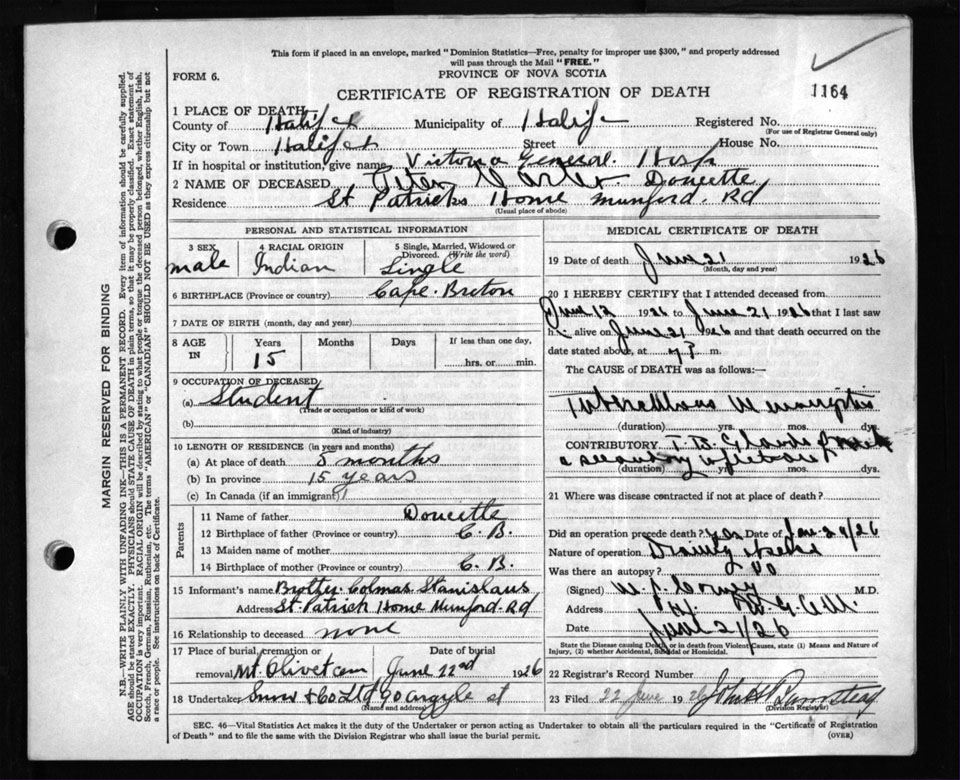 This form if placed in an envelope, marked "Dominion Statistics—Free, penalty for improper use $300," and properly addressed
will pass through the Mail "FREE."
FORM 6.
PROVINCE OF NOVA SCOTIA
CERTIFICATE OF REGISTRATION OF DEATH
1164
1 PLACE OF DEATH
County of Halifax Municipality of Halifax Registered No.
(For use of Registrar General only)
City or Town Halifax Street House No.
If in hospital or institution, give name Victoria General Hosp
2 NAME OF DECEASED Peter Doucette
Residence St Patricks Home Mumford Rd
(Usual place of abode)
PERSONAL AND STATISTICAL INFORMATION
3 SEX male
4 RACIAL ORIGIN Indian
5 Single, Married, Widowed or Divorced. (Write the word) Single
6 BIRTHPLACE (Province or country) Cape Breton
7 DATE OF BIRTH (month, day and year)
8 AGE IN Years 15 Months Days If less than one day, hrs. or min.
9 OCCUPATION OF DECEASED
(a) Student
(Trade or occupation or kind of work)
(b)
(Kind of industry)
10 LENGTH OF RESIDENCE (in years and months)
(a) At place of death 5 months
(b) In province 15 years
(c) In Canada (if an immigrant)
Parents
11 Name of father Doucette
12 Birthplace of father (Province or country) C. B.
13 Maiden name of mother
14 Birthplace of mother (Province or country) C. B.
15 Informant's name Colmas Stanislaus
Address St. Patrick Home Mumford Rd
16 Relationship to deceased none
17 Place of burial, cremation or removal Mt. Olivet cem Date of burial June 22nd 1926
18 Undertaker Snow & Co Ltd 90 argyle st
(Name and address)
MEDICAL CERTIFICATE OF DEATH
19 Date of death June 21 1926
(Month, day and year)
20 I HEREBY CERTIFY that I attended deceased from
June 12 1926 to June 21 1926 that I last saw
h alive on June 21 1926 and that death occurred on
date stated above, at 7 m.
The CAUSE OF DEATH was as follows:—
Tuberculous Meningitis
(duration) yrs. mos. dys.
CONTRIBUTORY T. B. Glands
a secondary
(duration) yrs. mos. dys.
21 Where was disease contracted if not at place of death?
Did an operation precede death? yes Date of Jan 24/26
Nature of operation
Was there an autopsy? no
(Signed) M.D.
Address
Date June 21/26
State the Disease causing Death, or in death from Violent Causes, state (1) Means and Nature of Injury, (2) whether Accidental, Suicidal or Homicidal.
22 Registrar's Record Number
23 Filed 22 June 1926
(Division Registrar)
SEC. 46—Vital Statistics Act makes it the duty of the Undertaker or person acting as Undertaker to obtain all the particulars required in the "Certificate of Registration
of Death" and to file the same with the Division Registrar who shall issue the burial permit.
(OVER)
MARGIN RESERVED FOR BINDING
N.B.—WRITE PLAINLY WITH UNFADING INK—THIS IS A PERMANENT RECORD. Every item of information should be carefully supplied.
AGE should be stated EXACTLY. PHYSICIANS should STATE CAUSE OF DEATH in plain terms, so that it may be properly classified. Exact statement of
OCCUPATION is very important. RACIAL ORIGIN will be described by stating to what people or tongue the deceased person belonged, whether English, Irish,
Scotch, French, German, Russian, Ruthenian, etc. The terms "AMERICAN" or "CANADIAN" SHOULD NOT BE USED as they express citizenship but not
a race or people. See instructions on back of Certificate.